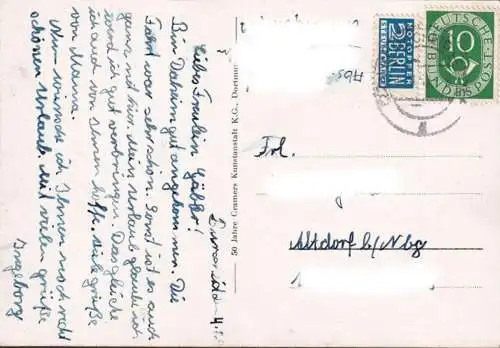 Liebes Fräulein Gäbler!
Bin Daheim gut angekommen. Die
Fahrt war sehr schön. Sonst ist es auch
ganz nett hier. Mein Urlaub glaube ich
werd ich gut verbringen. Das gleiche
ich auch von Ihnen hoffe. Viele grüße
von Mama.
Nun wünsche ich Ihnen noch recht
schönen Urlaub. Mit vielen grüße
Ingeborg
50 Jahre Cramers Kunstanstalt K.G., Dortmund
Abs
NOTOPFER
2 BERLIN
STEUERMARKE
DEUTSCHE POST
10
Frl.
Altdorf b/Nbg